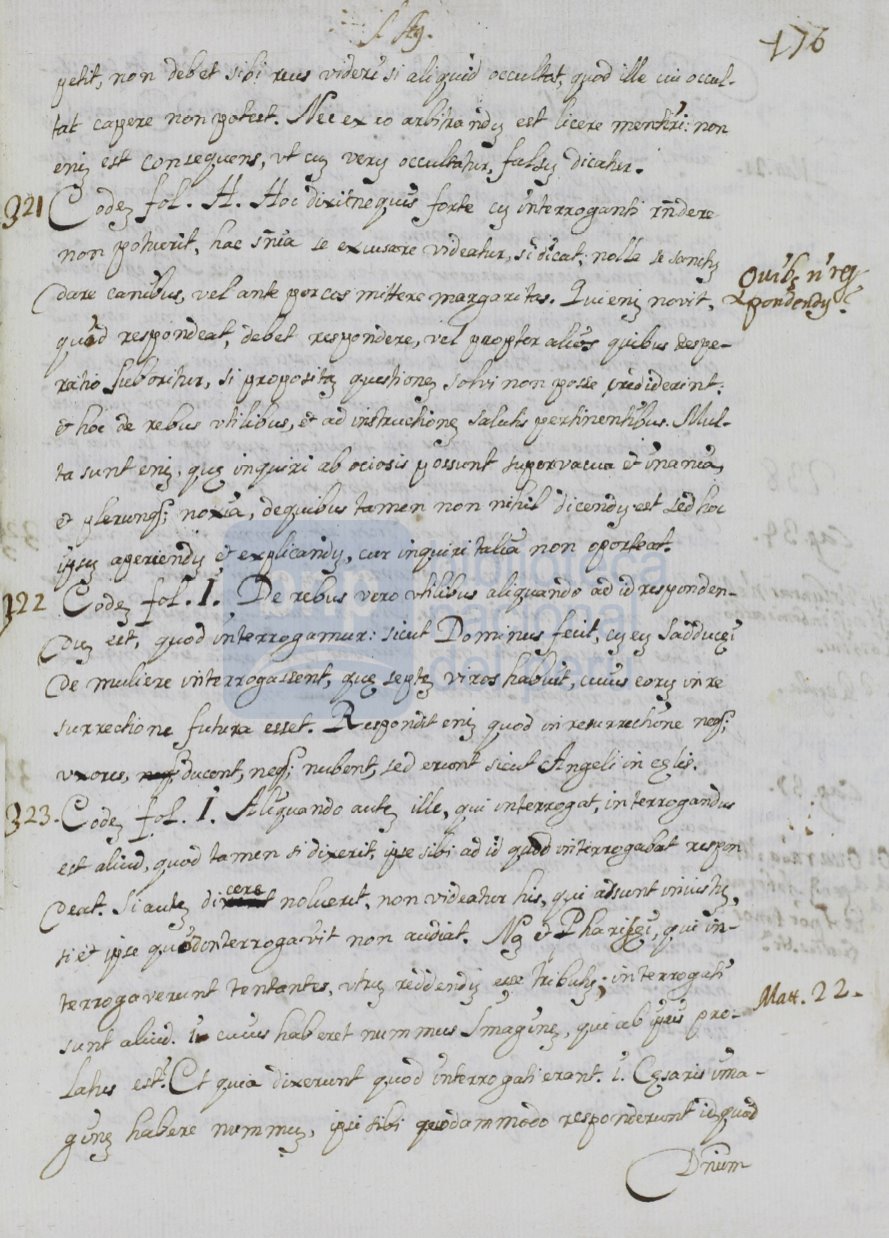 S. Ag.
176
petit, non debet sibi reus videri si aliquid occultat, quod ille cui occul-
tat capere non potest. Nec ex eo arbitrandũ est licere mentiri: non
enĩ est consequens, vt cũ verũ occultatur, falsũ dicatur.
321 Codẽ fol. H. Hoc dixit ne quis forte cũ interroganti rñdere
non potuerit, hac sñia se excusare videatur, si dicat; nolle se sanctũ
dare canibus, vel ante porcos mittere margaritas. Qui enĩ novit,
Quibꝰ n' res
pondendũ?
quid respondeat, debet respondere, vel propter alios quibus despe-
ratio suboritur, si propositã questionẽ solvi non posse crediderint:
et hoc de rebus vtilibus, et ad instructionẽ salutis pertinentibus. Mul-
ta sunt enĩ, quę inquiri ab ociosis possunt supervacua et inania,
et plerunq; noxia, de quibus tamen non nihil dicendũ est sed hoc
ipsũ aperiendũ et explicandũ, cur inquiri talia non oporteat.
322 Codẽ fol. I. De rebus vero vtilibus aliquando ad id responden-
dũ est, quod interrogamur: sicut Dominus fecit, cũ eũ Sadducęi
de muliere interrogassent, quę septẽ viros habuit, cuius eorũ in re
surrectione futura esset. Respondit enĩ quod in resurrectione neq;
uxores, ducent, neq; nubent, sed erunt sicut Angeli in cęlis.
323. Codẽ fol. I. Aliquando autẽ ille, qui interrogat, interrogandus
est aliud, quod tamen si dixerit, ipse sibi ad id quod interrogabat respon
deat. Si autẽ dicere noluerit, non videatur his, qui assunt iniustũ,
si et ipse quod interrogavit non audiat. Nã et Pharisęi, qui in-
terrogaverunt tentantes, vtrũ reddendũ esse Tributũ; interrogati
Matt. 22.
sunt aliud. i. cuius haberet nummus Imaginẽ, qui ab ipsis pro-
latus est. Et quia dixerunt quod interrogati erant. i. Cęsaris ima-
ginẽ habere nummũ, ipsi sibi quodammodo responderunt id, quod
Dñum
bnp biblioteca
nacional
del perú